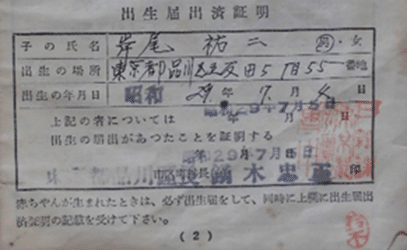 出生届出済証明
子の氏名 岸尾 祐二 男・女
出生の場所 東京都品川区五反田5丁目55番地
出生の年月日 昭和29年7月 日
昭和29年7月5日
上記の者については 年 月 日
出生の届出があつたことを証明する
昭和29年7月 日
東京都品川区長 鏑木忠正 印
赤ちやんが生まれたときは、必ず出生届をして、同時に上欄に出生届出
済証明の記載を受けて下さい。
(2)